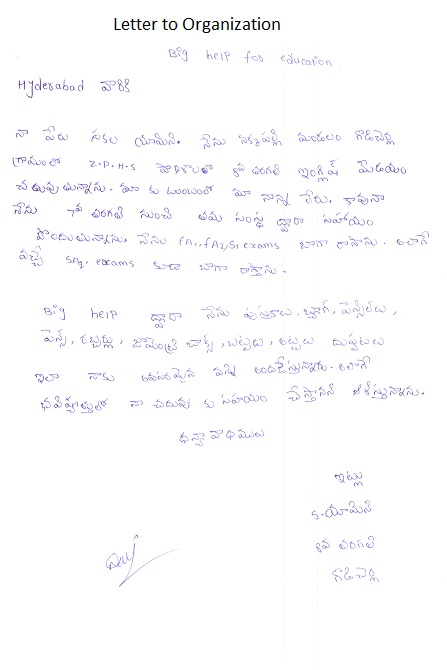 Letter to Organization
Big help for education
Hyderabad వారికి
నా పేరు సకల యామిని. నేను నక్కపల్లి మండలం గొడిచెర్ల
గ్రామంలో Z.P.H.S పాఠశాలలో 8వ తరగతి ఇంగ్లీష్ మీడియం
చదువుతున్నాను. మా కుటుంబంలో మా నాన్న లేరు. కావున
నేను 7వ తరగతి నుంచి తమ సంస్థ ద్వారా సహాయం
పొందుతున్నాను. నేను FA1, FA2, S1 exams బాగా రాసాను. అలాగే
వచ్చే SA2, exams కూడా బాగా రాస్తాను.
Big help ద్వారా నేను పుస్తకాలు, బ్యాగ్, పెన్సిల్‌లు,
పెన్స్, రబ్బర్లు, జామెంట్రి బాక్స్, బట్టలు, అట్టలు దుప్పటలు
ఇలా నాకు అవసరమైన వన్ని అందచేస్తున్నారు. అలాగే
భవిష్యత్తులో నా చదువు కు సహాయం చేస్తారని ఆశిస్తున్నాను.
ధన్యావాధములు
ఇట్లు
S. యామిని
8వ తరగతి
గొడిచెర్ల